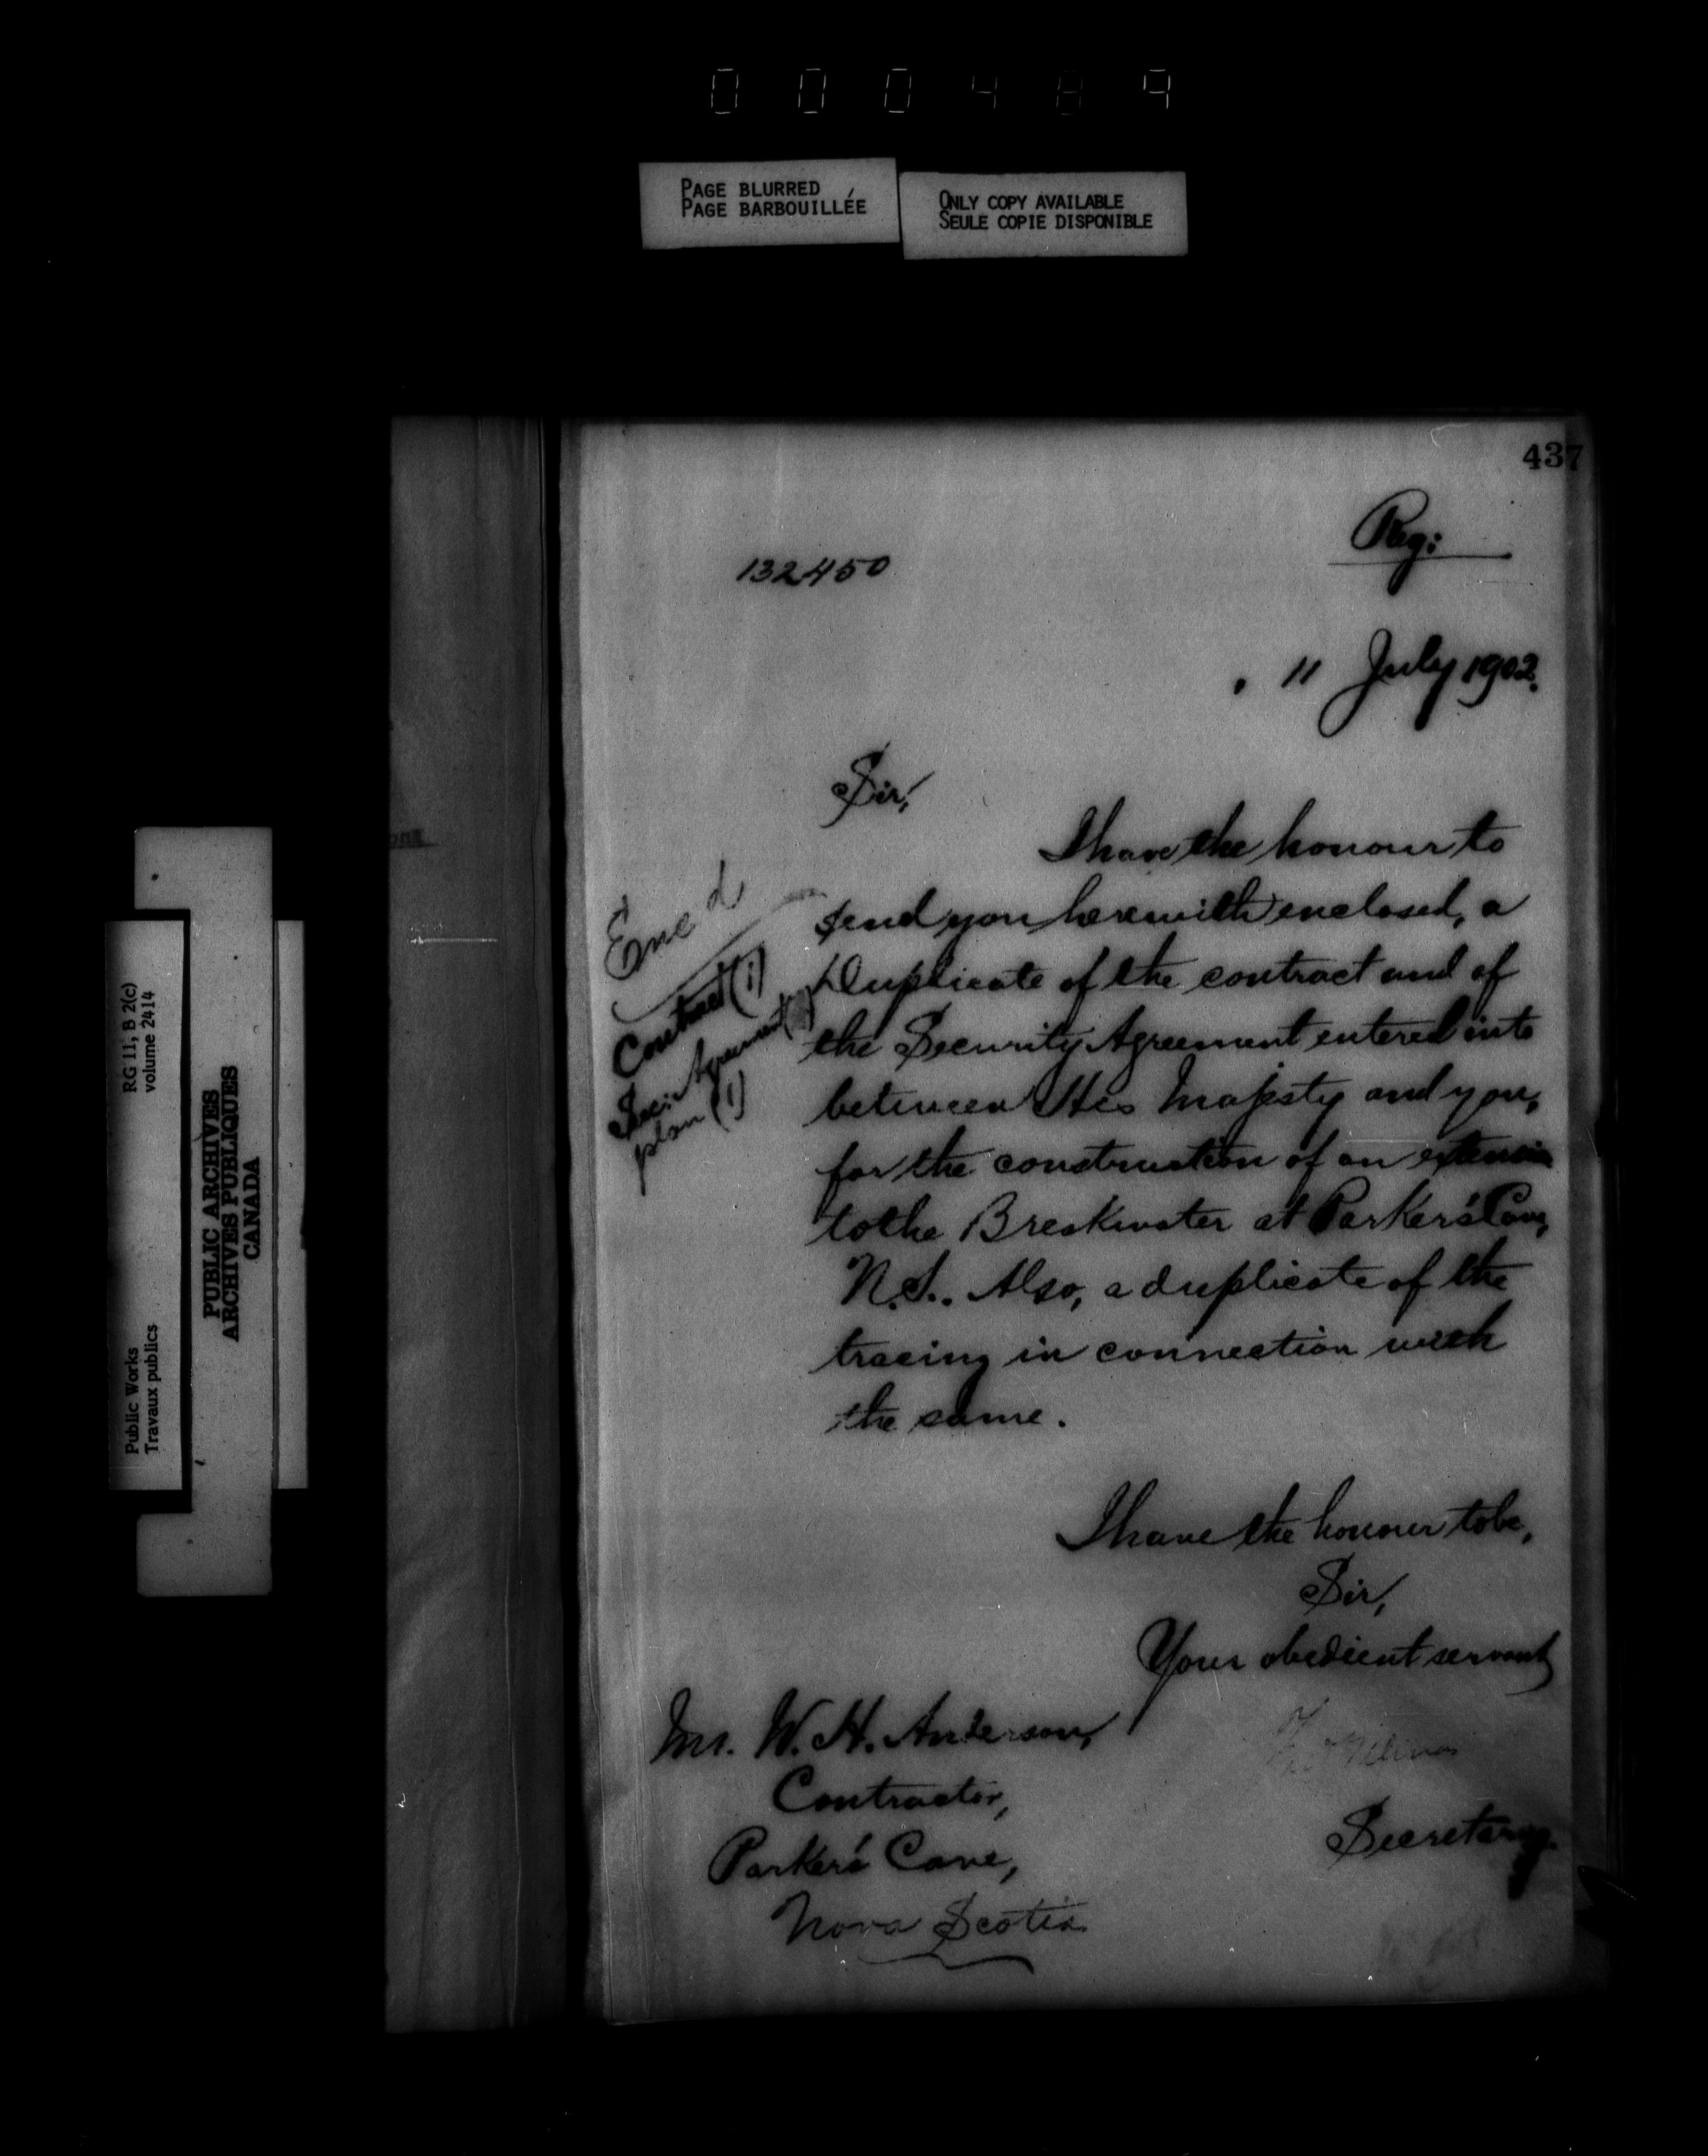 000489
PAGE BLURRED
PAGE BARBOUILLÉE
ONLY COPY AVAILABLE
SEULE COPIE DISPONIBLE
437
Reg:
132450
11 July 1902.
Sir,
I have the honour to
send you herewith enclosed, a
Duplicate of the contract and of
the Security Agreement entered into
between His Majesty and you,
for the construction of an extension
to the Breakwater at Parker's Cove,
N.S.. Also, a duplicate of the
tracing in connection with
the same.
Enc d
Contract (1)
Sec: Agreement
plan (1)
I have the honour to be,
Sir,
Your obedient servant
Secretary.
Mr. W. H. Anderson,
Contractor,
Parker's Cove,
Nova Scotia
RG 11, B 2(c)
volume 2414
Public Works
Travaux publics
PUBLIC ARCHIVES
ARCHIVES PUBLIQUES
CANADA